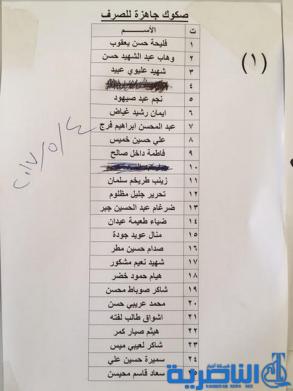 صكوك جاهزة للصرف
ت الأســـم
١ فليحة حسن يعقوب
٢ وهاب عبد الشهيد حسن
٣ شهيد عليوي عبيد
٤
٥ نجم عبد صيهود
٦ ايمان رشيد غياض
٧ عبد المحسن ابراهيم فرج
٨ علي حسين خميس
٩ فاطمة داخل صالح
١٠
١١ زينب طريخم سلمان
١٢ تحرير جليل مظلوم
١٣ ضرغام عبد الحسين جبر
١٤ ضياء طعيمة عبدان
١٥ منال عويد جودة
١٦ صدام حسين مطر
١٧ شهيد نعيم مشكور
١٨ هيام حمود خضر
١٩ شاكر صوباط محسن
٢٠ محمد عريبي حسن
٢١ اشواق طالب لفته
٢٢ هيثم صبار كمر
٢٣ شاكر لعيبي ميس
٢٤ سميرة حسين علي
سعاد قاسم محيسن
(١)
٢٠١٧/٥/٤
الناصرية